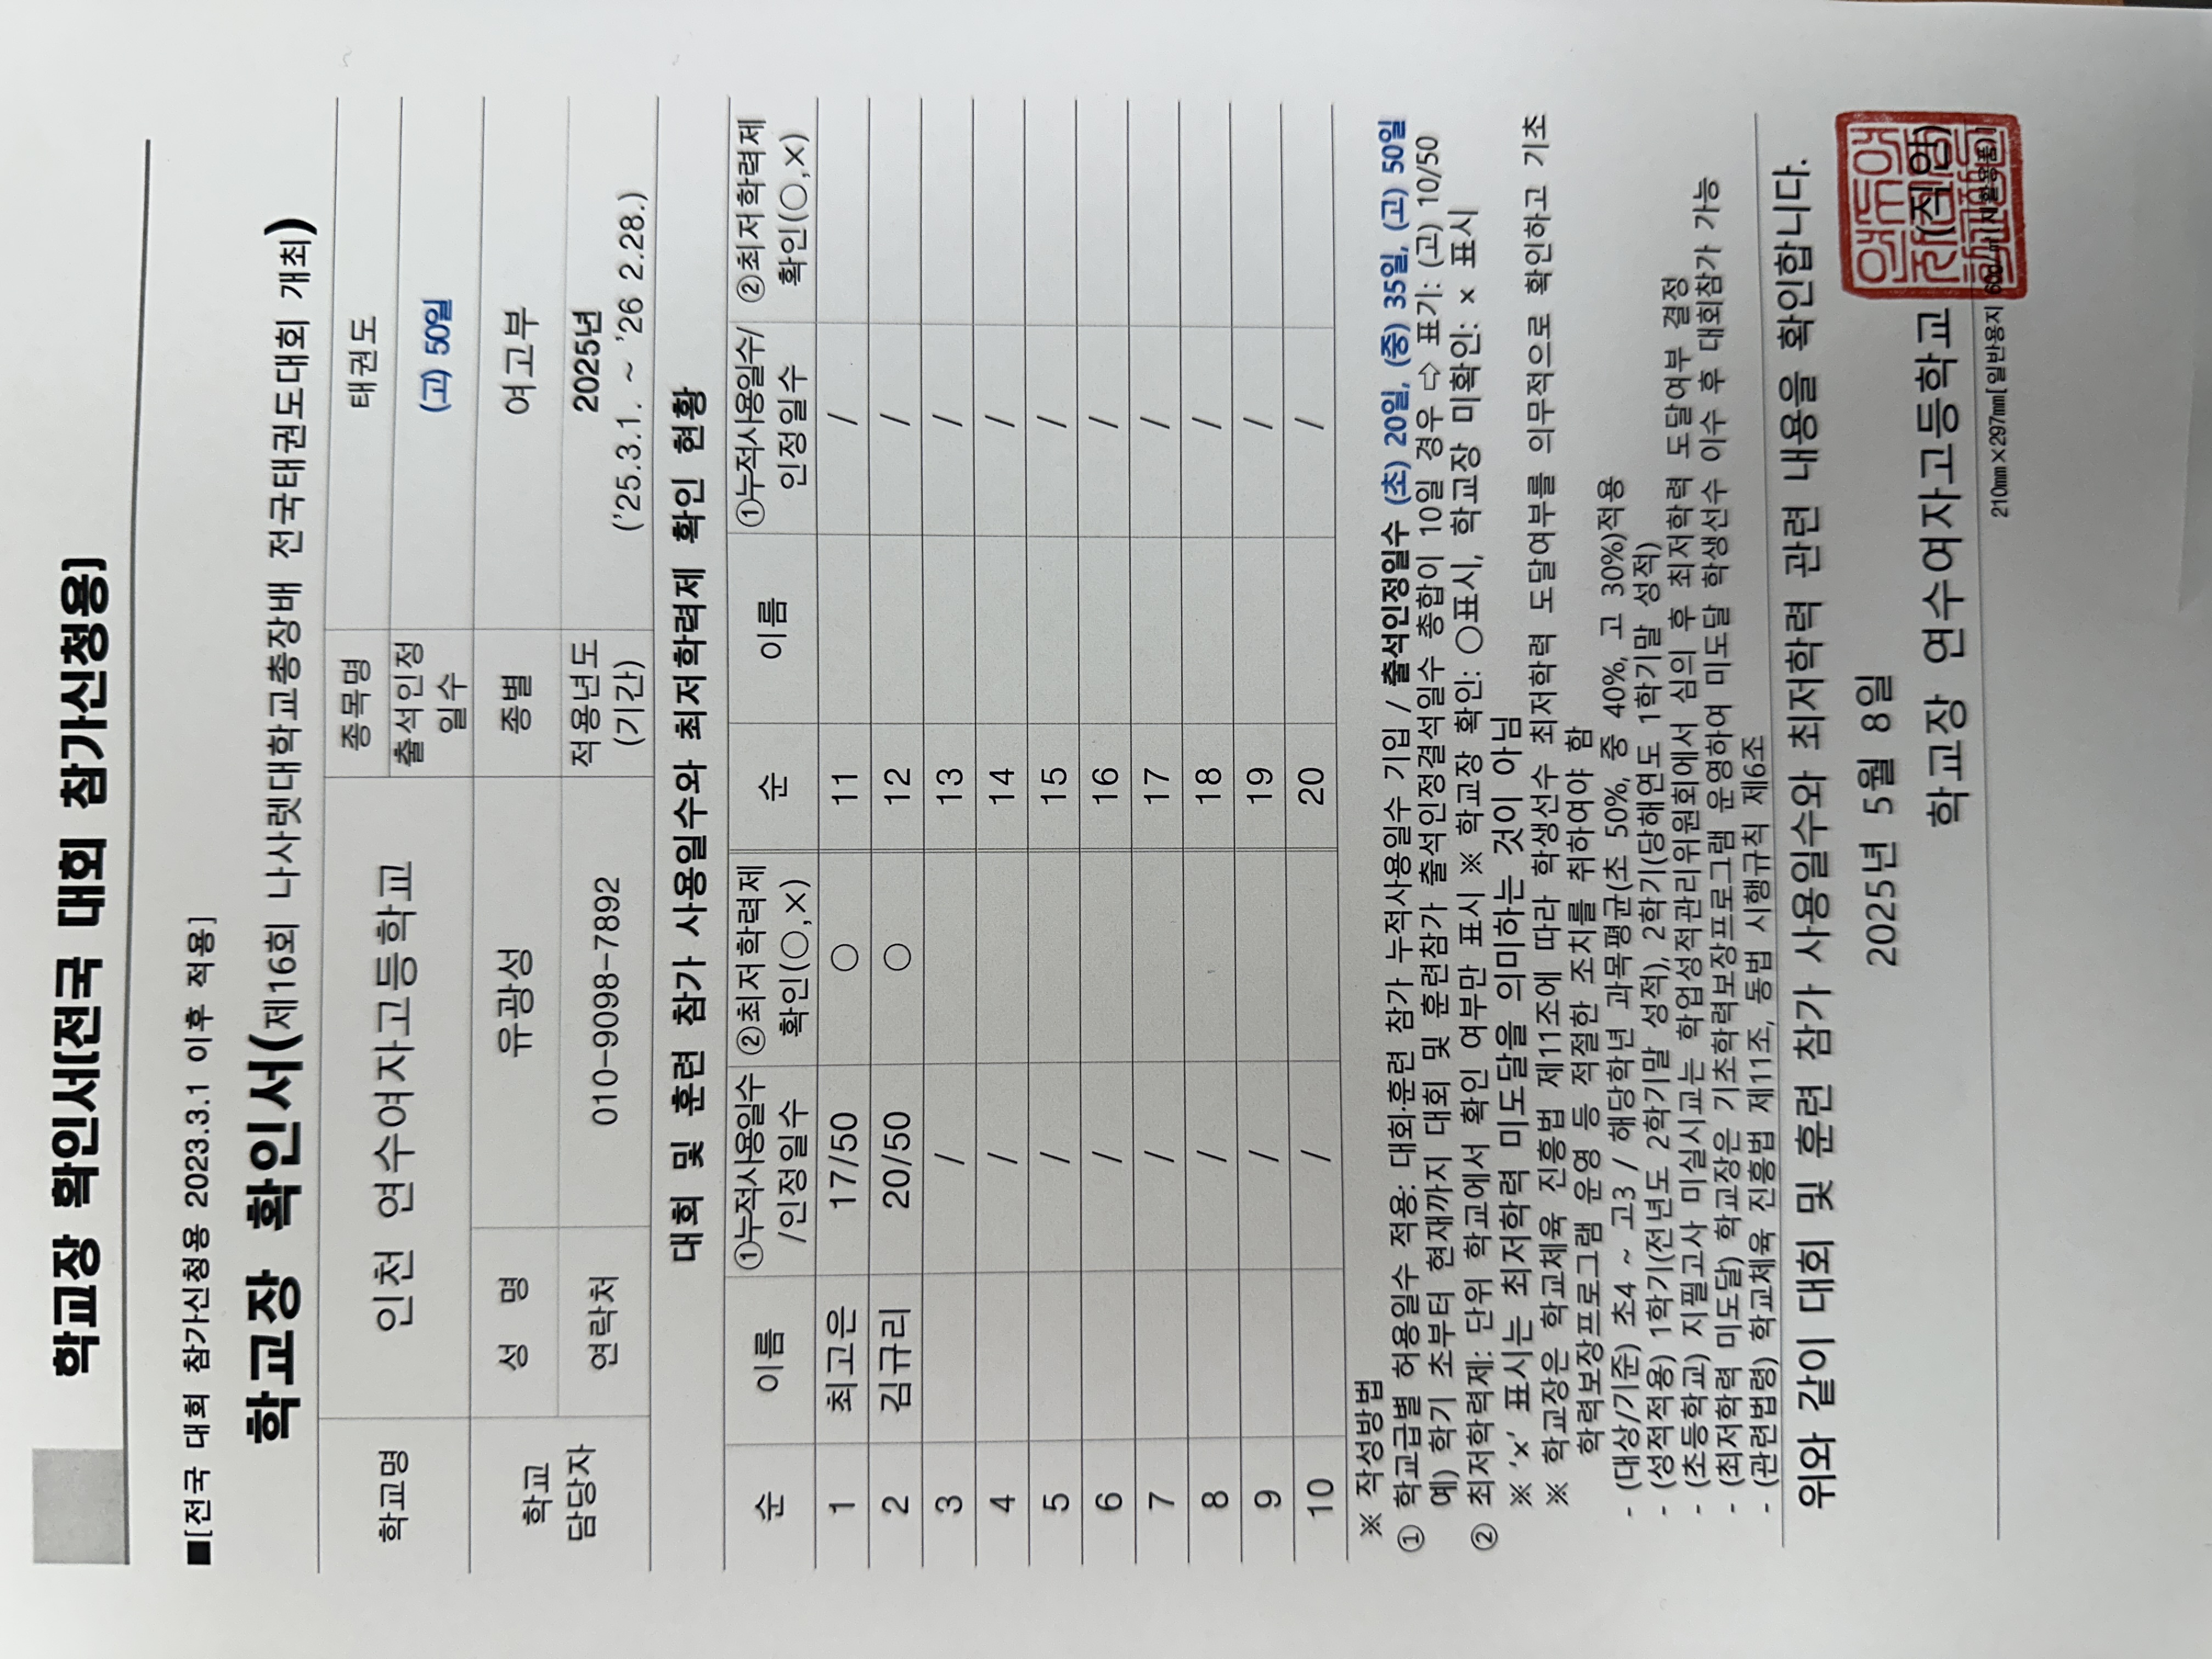 학교장 확인서[전국 대회 참가신청용]
■[전국 대회 참가신청용 2023.3.1 이후 적용]
학교장 확인서(제16회 나사렛대학교총장배 전국태권도대회 개최)
학교명 인천 연수여자고등학교 종목명 태권도
출석인정일수 (고) 50일
학교 담당자 성 명 유광성 종별 여고부
연락처 010-9098-7892 적용년도 (기간) 2025년 ('25.3.1. ~ '26 2.28.)
대회 및 훈련 참가 사용일수와 최저학력제 확인 현황
순 이름 ①누적사용일수/인정일수 ②최저학력제 확인(○,×) 순 이름 ①누적사용일수/인정일수 ②최저학력제 확인(○,×)
1 최고은 17/50 ○ 11 /
2 김규리 20/50 ○ 12 /
3 / 13 /
4 / 14 /
5 / 15 /
6 / 16 /
7 / 17 /
8 / 18 /
9 / 19 /
10 / 20 /
※ 작성방법
① 학교급별 허용일수 적용: 대회·훈련 참가 누적사용일수 기입 / 출석인정일수 (초) 20일, (중) 35일, (고) 50일
예) 학기 초부터 현재까지 대회 및 훈련참가 출석인정결석일수 총합이 10일 경우 ⇨ 표기: (고) 10/50
② 최저학력제: 단위 학교에서 확인 여부만 표시 ※ 학교장 확인: ○표시, 학교장 미확인: × 표시
※ 'x' 표시는 최저학력 미도달을 의미하는 것이 아님
※ 학교장은 학교체육 진흥법 제11조에 따라 학생선수 최저학력 도달여부를 의무적으로 확인하고 기초
학력보장프로그램 운영 등 적절한 조치를 취하여야 함
- (대상/기준) 초4 ~ 고3 / 해당학년 과목평균(초 50%, 중 40%, 고 30%)적용
- (성적적용) 1학기(전년도 2학기말 성적), 2학기(당해연도 1학기말 성적)
- (초등학교) 지필고사 미실시교는 학업성적관리위원회에서 심의 후 최저학력 도달여부 결정
- (최저학력 미도달) 학교장은 기초학력보장프로그램 운영하여 미도달 학생선수 이수 후 대회참가 가능
- (관련법령) 학교체육 진흥법 제11조, 동법 시행규칙 제6조
위와 같이 대회 및 훈련 참가 사용일수와 최저학력 관련 내용을 확인합니다.
2025년 5월 8일
학교장 연수여자고등학교 (직인)
210㎜×297㎜[일반용지 60g/㎡(재활용품)]